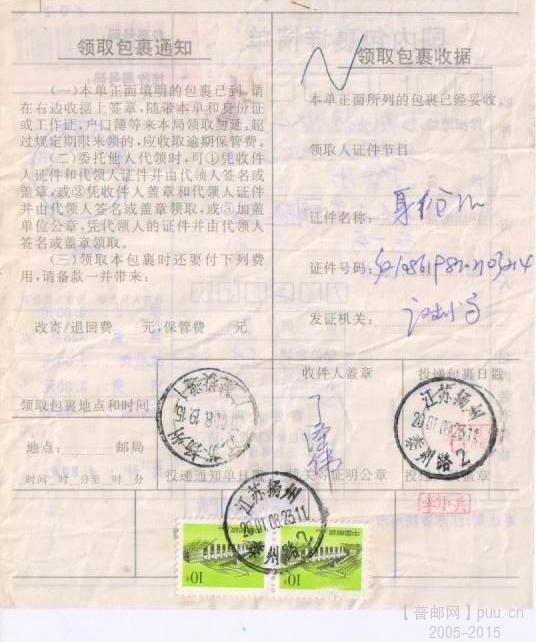 领取包裹通知
(一)本单正面填明的包裹已到,请
在右边收据上签章,随带本单和身份证
或工作证、户口簿等来本局领取勿延。超
过规定期限来领的,应收取逾期保管费。
(二)委托他人代领时,可①凭收件
人证件和代领人证件并由代领人签名或
盖章,或②凭收件人盖章和代领人证件
并由代领人签名或盖章领取,或③加盖
单位公章,凭代领人的证件并由代领人
签名或盖章领取。
(三)领取本包裹时还要付下列费
用,请备款一并带来:
改寄/退回费 元,保管费 元
领取包裹地点和时间
地点: 邮局
时间 时 分至 时 分
领取包裹收据
本单正面所列的包裹已经妥收
领取人证件节目
证件名称: 身份证
证件号码:
发证机关:
收件人盖章
投递包裹日戳
投递通知单日戳
机关 证明公章
投递 盖章
江苏扬州
江苏扬州
2001.08.25.11
2
江苏扬州
2001.08.25.11
2
李小兵
中国邮政
10分
中国邮政
10分
【普邮网】puu.cn
2005-2015